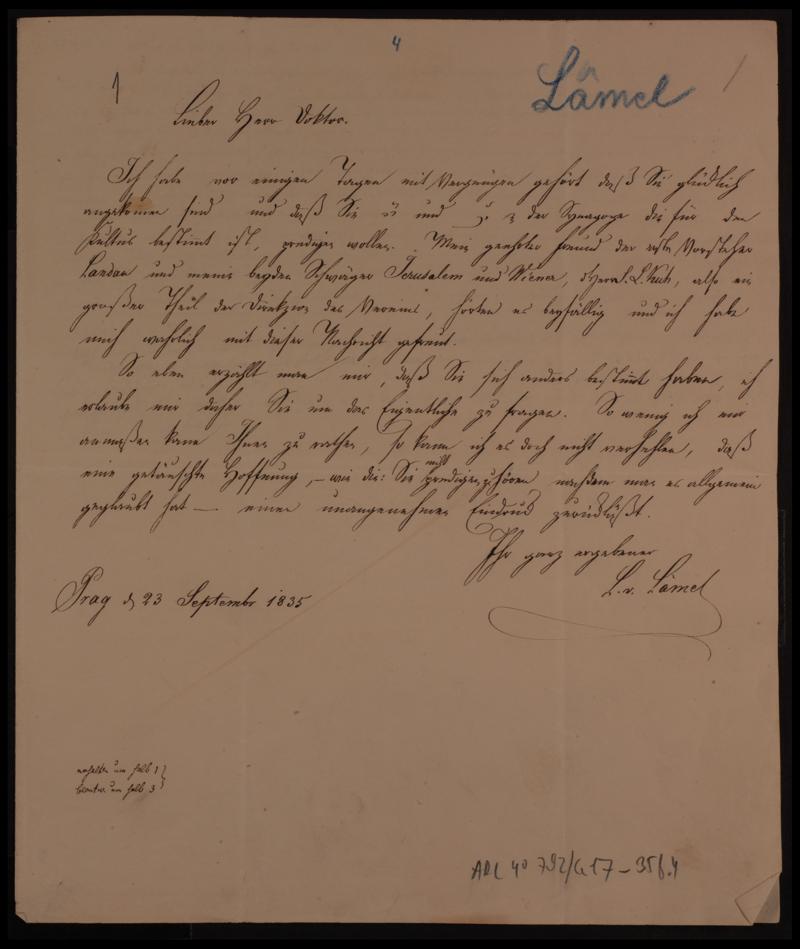 4
1
Lämel
Lieber Herr Doktor.
Ich habe vor einigen Tagen mit Vergnügen gehört daß Sie glücklich
angekommen sind und daß Sie und der Synagoge die für den
Kultus bestimmt ist, predigen wollen. Mein geehrter Freund der erste Vorsteher
Landau und meine beyden Schwäger Jerusalem und Wiener, also ein
großer Theil der Direkzion des Vereins, hörten es beyfällig und ich habe
mich wahrlich mit dieser Nachricht gefreut.
So eben erzählt man mir, daß Sie sich anders bestimmt haben, ich
erlaube mir daher Sie um das Eigentliche zu fragen. So wenig ich mir
anmaßen kann Ihnen zu rathen, so kann ich es doch nicht verhehlen, daß
eine getäuschte Hoffnung, – wie die: Sie nicht predigen zu hören nachdem man es allgemein
geglaubt hat — einen unangenehmen Eindruck zurückläßt.
Ihr ganz ergebener
L. v. Lämel
Prag d 23 Septembr 1835
erhalten um halb 1
beantw. um halb 3
ARC 4° 792/G17-356.4